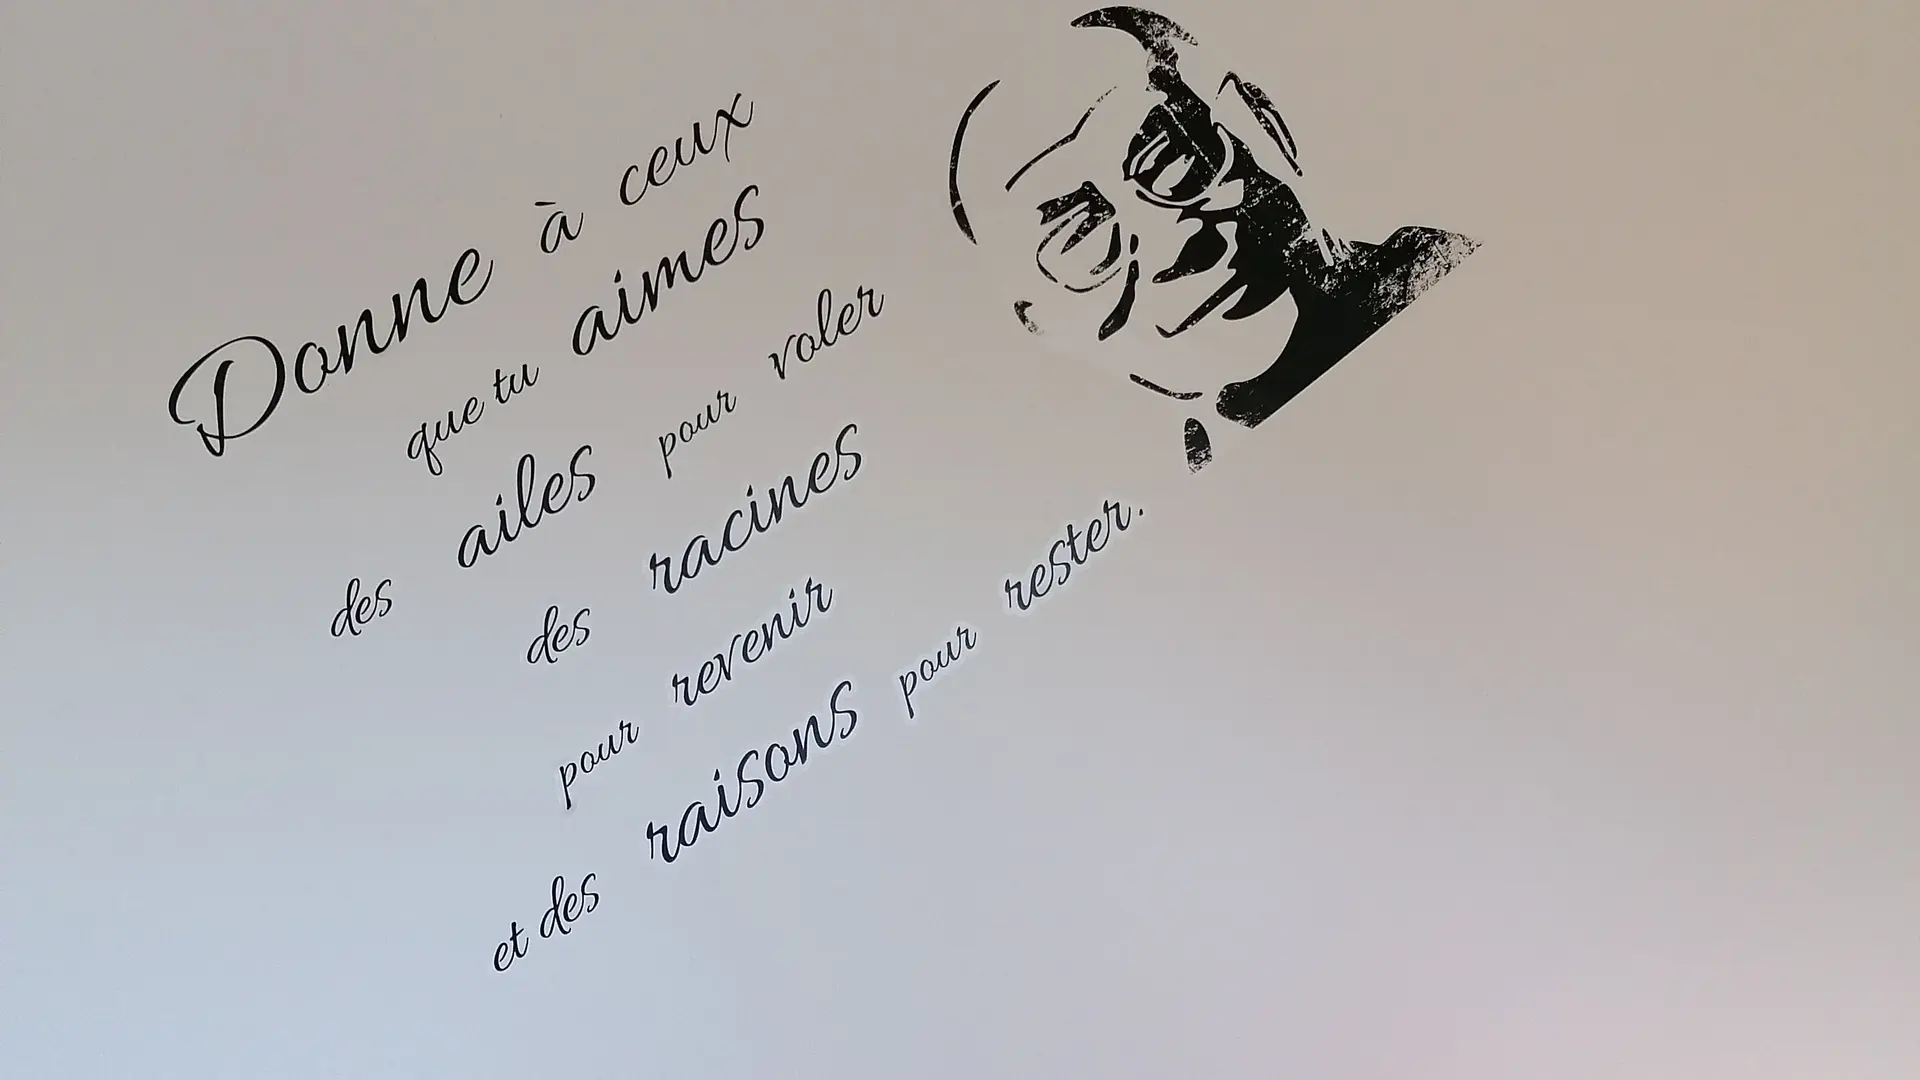 Donne à ceux
que tu aimes
des ailes pour voler
des racines
pour revenir
et des raisons pour rester.